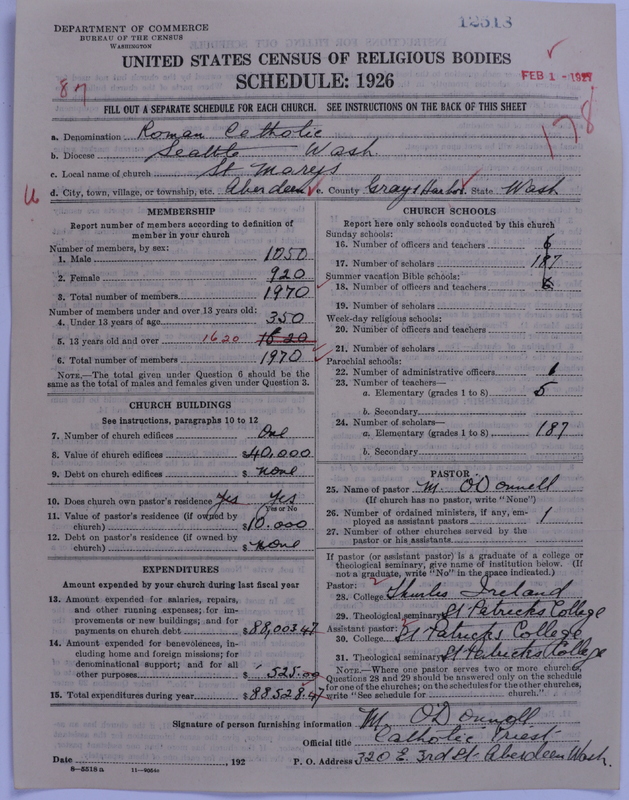 DEPARTMENT OF COMMERCE
BUREAU OF THE CENSUS
WASHINGTON
12518
UNITED STATES CENSUS OF RELIGIOUS BODIES
SCHEDULE: 1926
FEB 1 - 1927
87
178
FILL OUT A SEPARATE SCHEDULE FOR EACH CHURCH. SEE INSTRUCTIONS ON THE BACK OF THIS SHEET
a. Denomination Roman Catholic
b. Diocese Seattle Wash
c. Local name of church St Marys
d. City, town, village, or township, etc. Aberdeen e. County Grays Harbor State Wash
MEMBERSHIP
Report number of members according to definition of
member in your church
Number of members, by sex:
1. Male 1050
2. Female 920
3. Total number of members 1970
Number of members under and over 13 years old:
4. Under 13 years of age 350
5. 13 years old and over 1620 1620
6. Total number of members 1970
NOTE.—The total given under Question 6 should be the
same as the total of males and females given under Question 3.
CHURCH BUILDINGS
See instructions, paragraphs 10 to 12
7. Number of church edifices One
8. Value of church edifices $40,000
9. Debt on church edifices $ none
10. Does church own pastor's residence Yes Yes
Yes or No
11. Value of pastor's residence (if owned by
church) $10,000
12. Debt on pastor's residence (if owned by
church) $ none
EXPENDITURES
Amount expended by your church during last fiscal year
13. Amount expended for salaries, repairs,
and other running expenses; for im-
provements or new buildings; and for
payments on church debt $88,003.47
14. Amount expended for benevolences, in-
cluding home and foreign missions; for
denominational support; and for all
other purposes $ 525.00
15. Total expenditures during year $88528.47
CHURCH SCHOOLS
Report here only schools conducted by this church
Sunday schools:
16. Number of officers and teachers 6
17. Number of scholars 187
Summer vacation Bible schools:
18. Number of officers and teachers
19. Number of scholars
Week-day religious schools:
20. Number of officers and teachers
21. Number of scholars
Parochial schools:
22. Number of administrative officers 1
23. Number of teachers—
a. Elementary (grades 1 to 8) 5
b. Secondary
24. Number of scholars—
a. Elementary (grades 1 to 8) 187
b. Secondary
PASTOR
25. Name of pastor M. O'Donnell
(If church has no pastor, write "None")
26. Number of ordained ministers, if any, em-
ployed as assistant pastors 1
27. Number of other churches served by the
pastor or his assistants
If pastor (or assistant pastor) is a graduate of a college or
theological seminary, give name of institution below. (If
not a graduate, write "No" in the space indicated.)
Pastor:
28. College Thurles Ireland
29. Theological seminary St Patricks College
Assistant pastor:
30. College St Patricks College
31. Theological seminary St Patricks College
NOTE.—Where one pastor serves two or more churches,
Questions 28 and 29 should be answered only on the schedule
for one of the churches; on the schedules for the other churches,
write "See schedule for church."
Signature of person furnishing information M. O'Donnell
Official title Catholic Priest
Date , 192 P. O. Address 320 E. 3rd St. Aberdeen Wash.
8—5518a 11—9054a